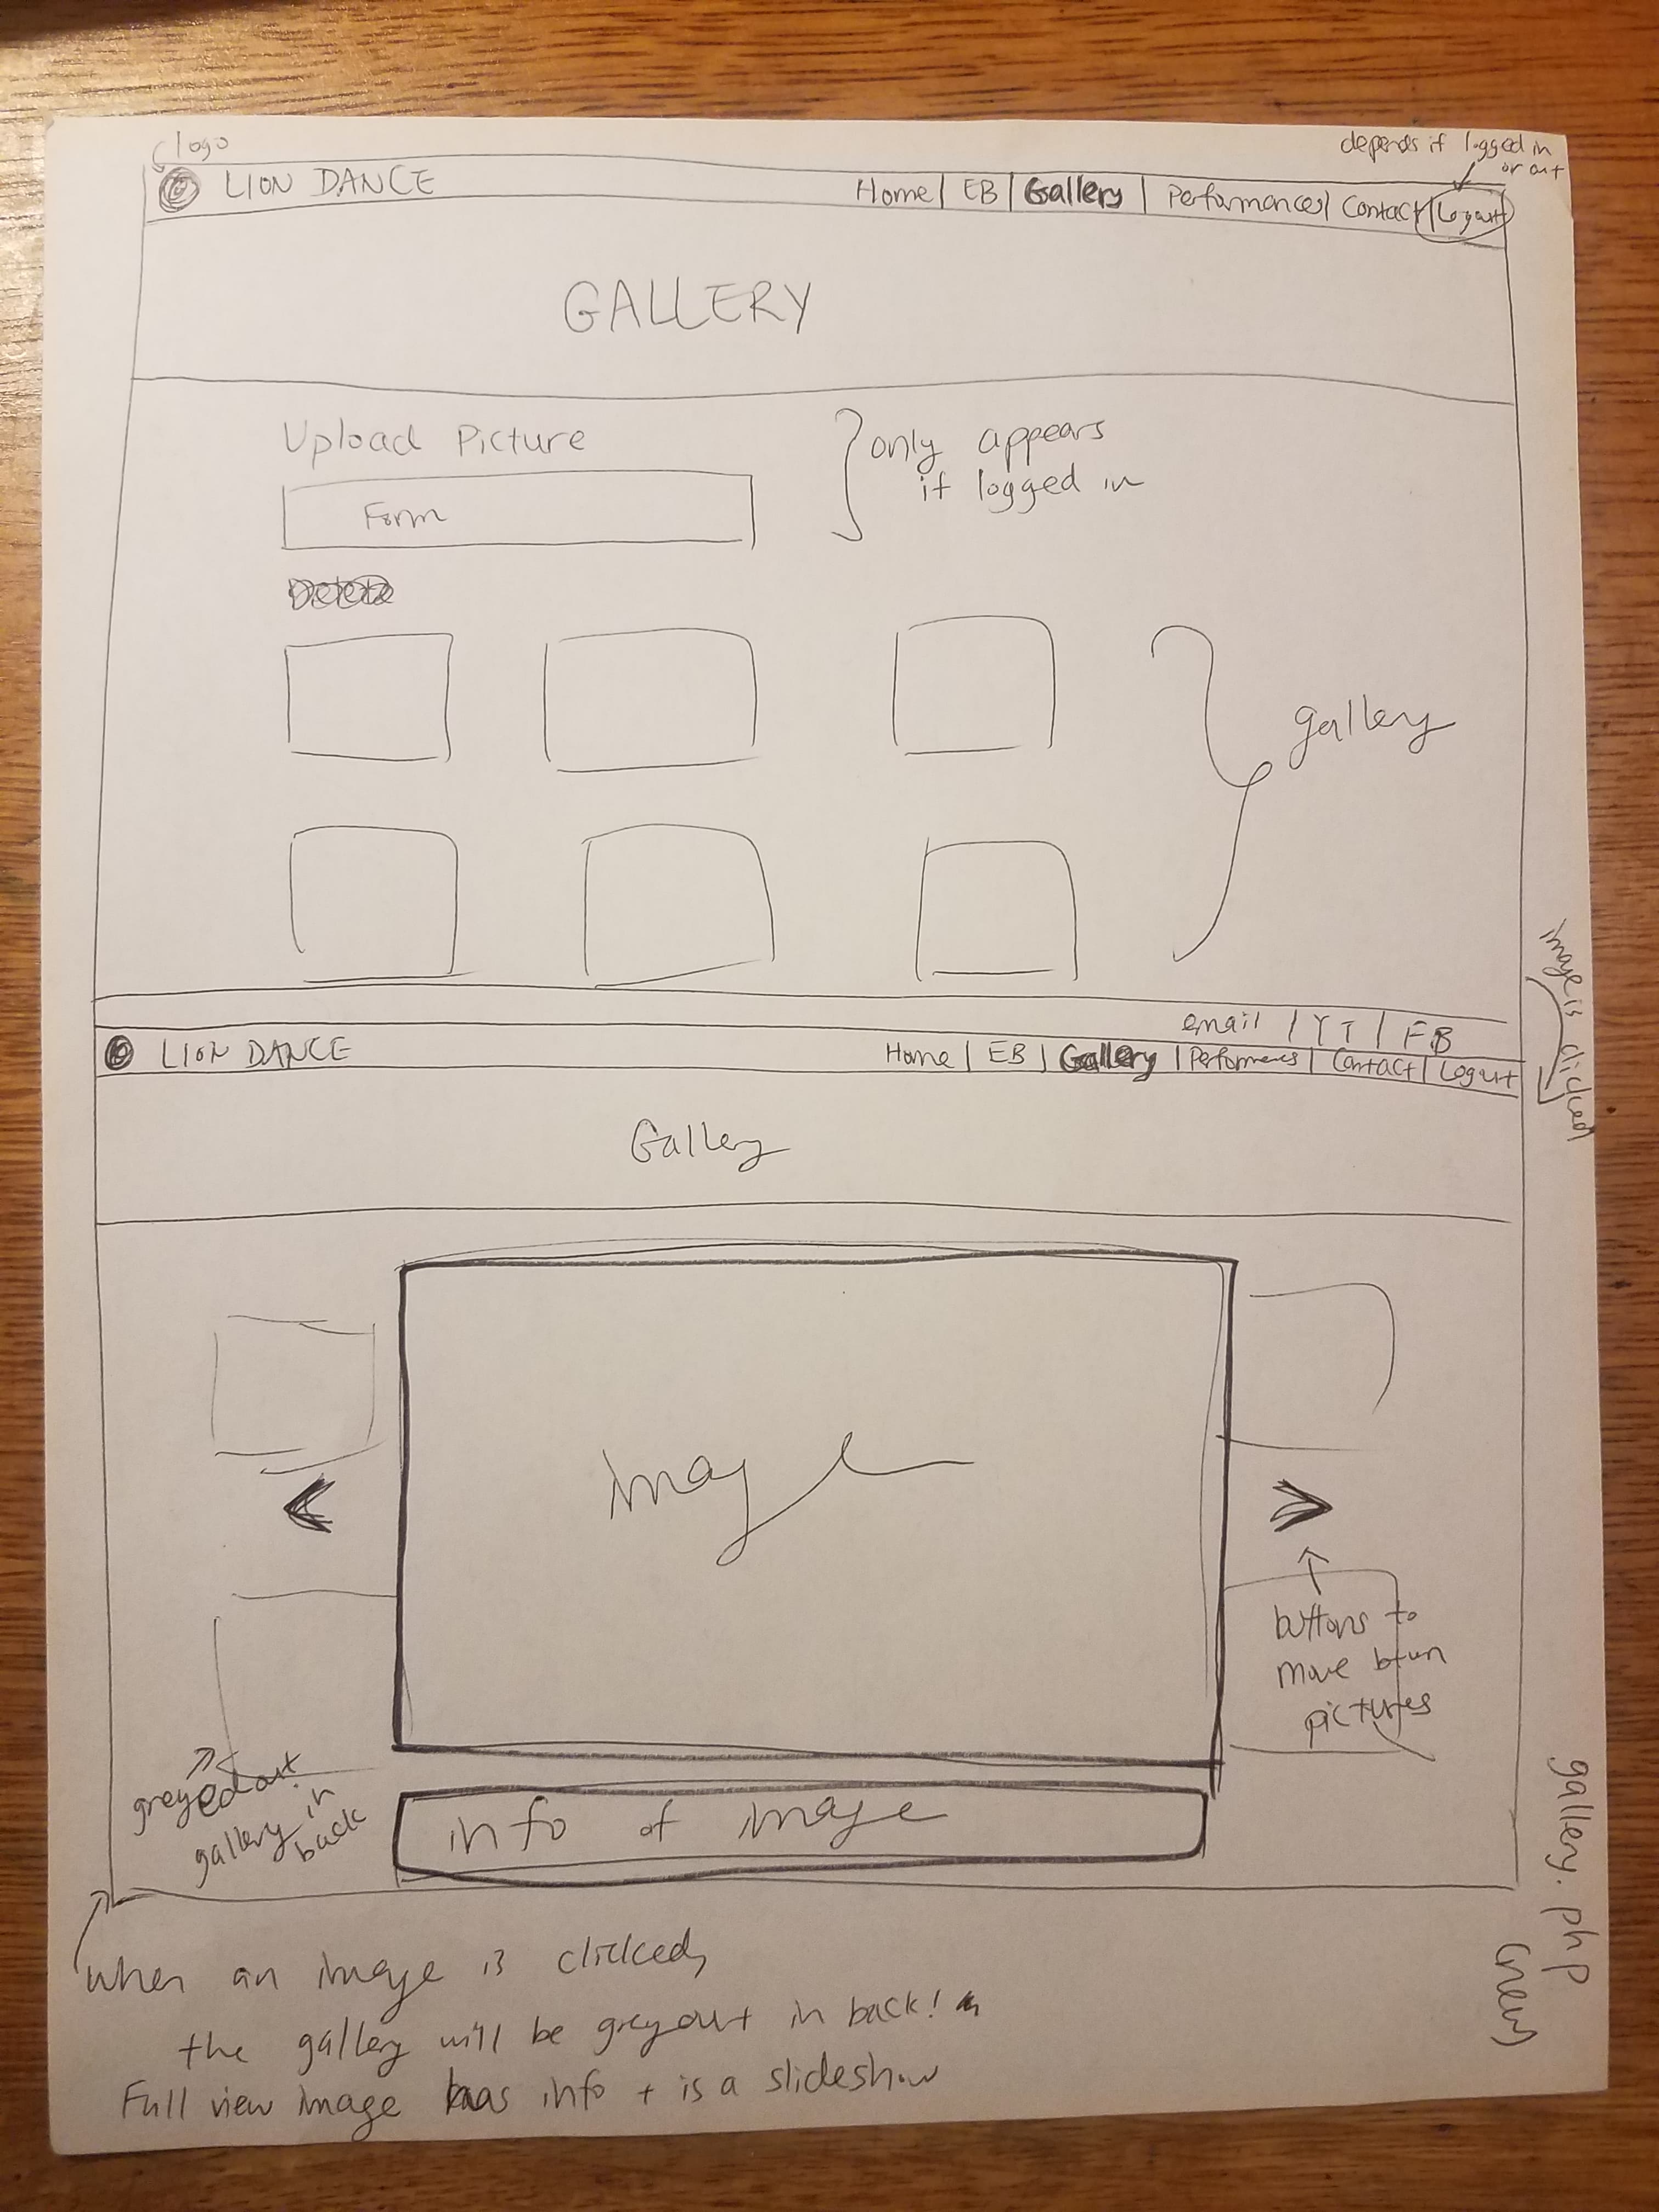 logo
depends if logged in
or out
LION DANCE
Home | EB | Gallery | Performances | Contact | Logout
GALLERY
Upload Picture
only appears
if logged in
Form
Delete
gallery
image is clicked
email | YT | FB
LION DANCE
Home | EB | Gallery | Performances | Contact | Logout
Gallery
image
buttons to
move btwn
pictures
greyed out
gallery in
back
info of image
gallery.php
(new)
when an image is clicked,
the gallery will be grey out in back!
Full view image has info + is a slideshow